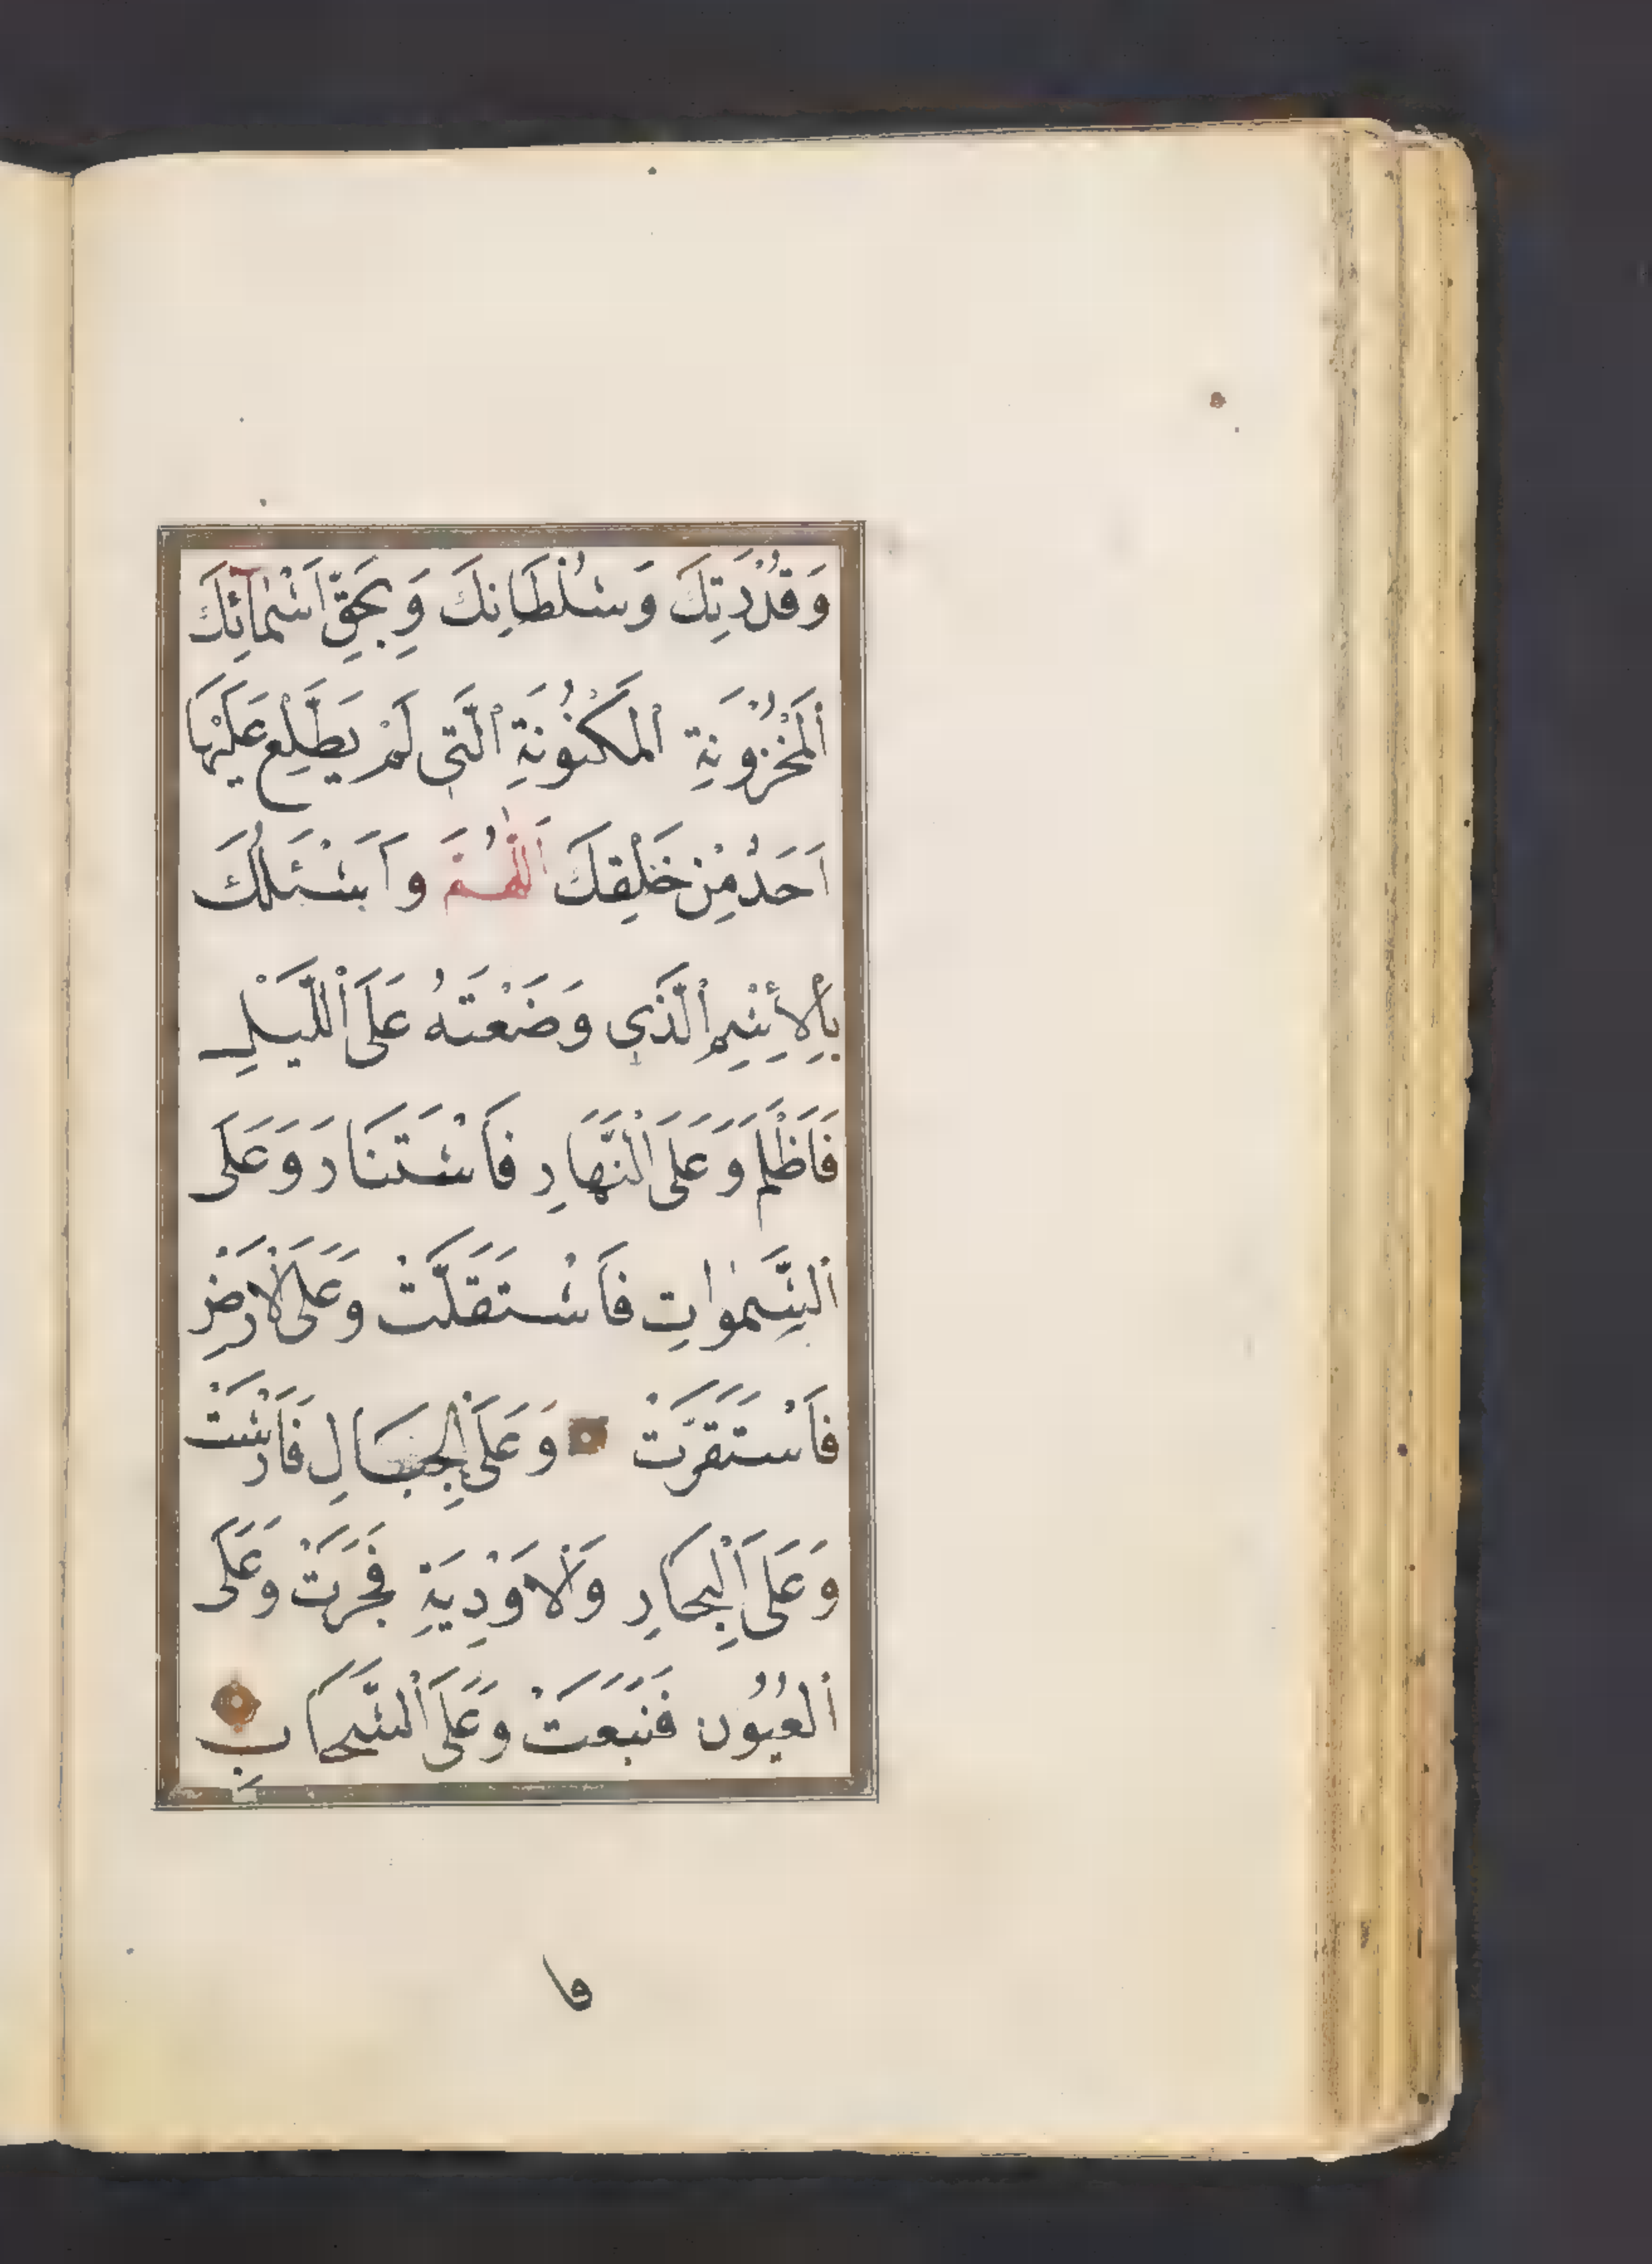 وَقُدْرَتِكَ وَسُلْطَانِكَ وَبِحَقِّ اَسْمَآئِكَ
اَلْمَخْزُونَةِ الْمَكْنُونَةِ الَّتِى لَمْ يَطَّلِعْ عَلَيْهَا
اَحَدٌ مِنْ خَلْقِكَ اَللّٰهُمَّ وَاَسْئَلُكَ
بِالْأِسْمِ الَّذِى وَضَعْتَهُ عَلَى اللَّيْلِ
فَاَظْلَمَ وَعَلَى النَّهَارِ فَاسْتَنَارَ وَعَلَى
السَّمٰوَاتِ فَاسْتَقَلَّتْ وَعَلَى الْاَرْضِ
فَاسْتَقَرَّتْ وَعَلَى الْجِبَالِ فَاَرْسَتْ
وَعَلَى الْبِحَارِ وَالْاَوْدِيَةِ فَجَرَتْ وَعَلَى
الْعُيُونِ فَنَبَعَتْ وَعَلَى السَّحَابِ
فا